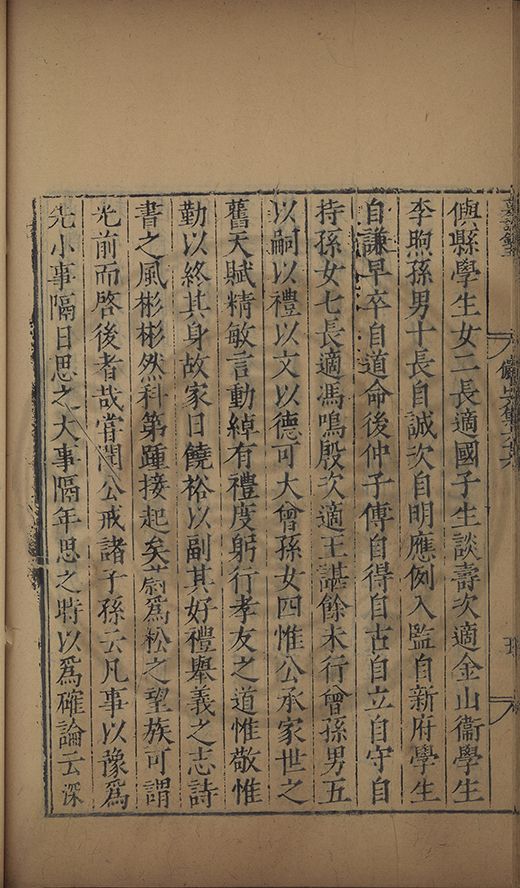 俱縣學生女二長適國子生談壽次適金山衞學生
李煦孫男十長自誠次自明應例入監自新府學生
自謙早卒自道命後仲子傳自得自古自立自守自
持孫女七長適馮鳴殷次適王諶餘未行曾孫男五
以嗣以禮以文以德可大曾孫女四惟公承家世之
舊天賦精敏言動綽有禮度躬行孝友之道惟敬惟
勤以終其身故家日饒裕以副其好禮舉義之志詩
書之風彬彬然科第踵接起矣蔚爲松之望族可謂
光前而啓後者哉嘗聞公戒諸子孫云凡事以豫爲
先小事隔日思之大事隔年思之時以爲確論云深